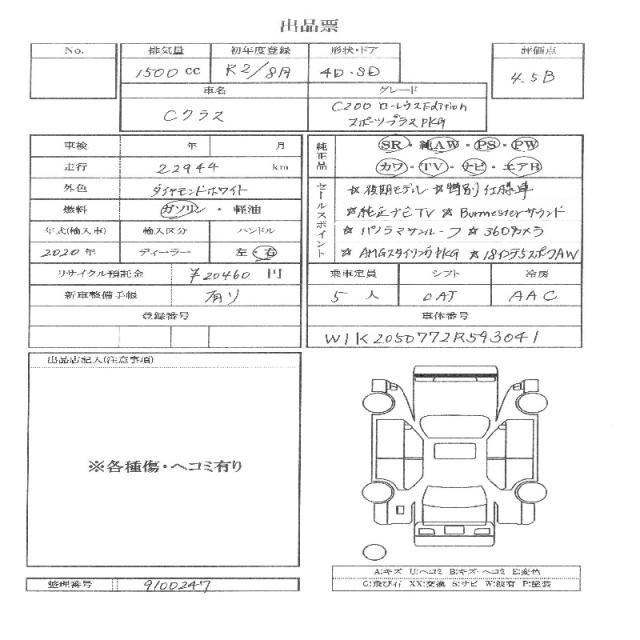 出品票
No. 排気量 初年度登録 形状・ドア 評価点
1500 cc R2/8月 4D・SD 4.5B
車名 グレード
Cクラス C200 ローレウスEdition
スポーツプラスPKG
車検 年 月
走行 22944 km
外色 ダイヤモンドホワイト
燃料 ガソリン・軽油
年式(輸入車) 輸入区分 ハンドル
2020年 ディーラー 左・右
リサイクル預託金 ¥20460 円
新車整備手帳 有り
登録番号
純正品 SR・純AW・PS・PW
カワ・TV・ナビ・エアB
セールスポイント ☆後期モデル ☆特別仕様車
☆純正ナビTV ☆Burmesterサウンド
☆パノラマサンルーフ ☆360°カメラ
☆AMGスタイリングPKG ☆18インチスポークAW
乗車定員 シフト 冷房
5 人 AT AAC
車体番号
W1K2050772R593041
出品店記入(注意事項)
※各種傷・ヘコミ有り
A:キズ U:ヘコミ B:キズ・ヘコミ E:変色
G:飛び石 XX:交換 S:サビ W:波有 P:塗装
整理番号 9100247